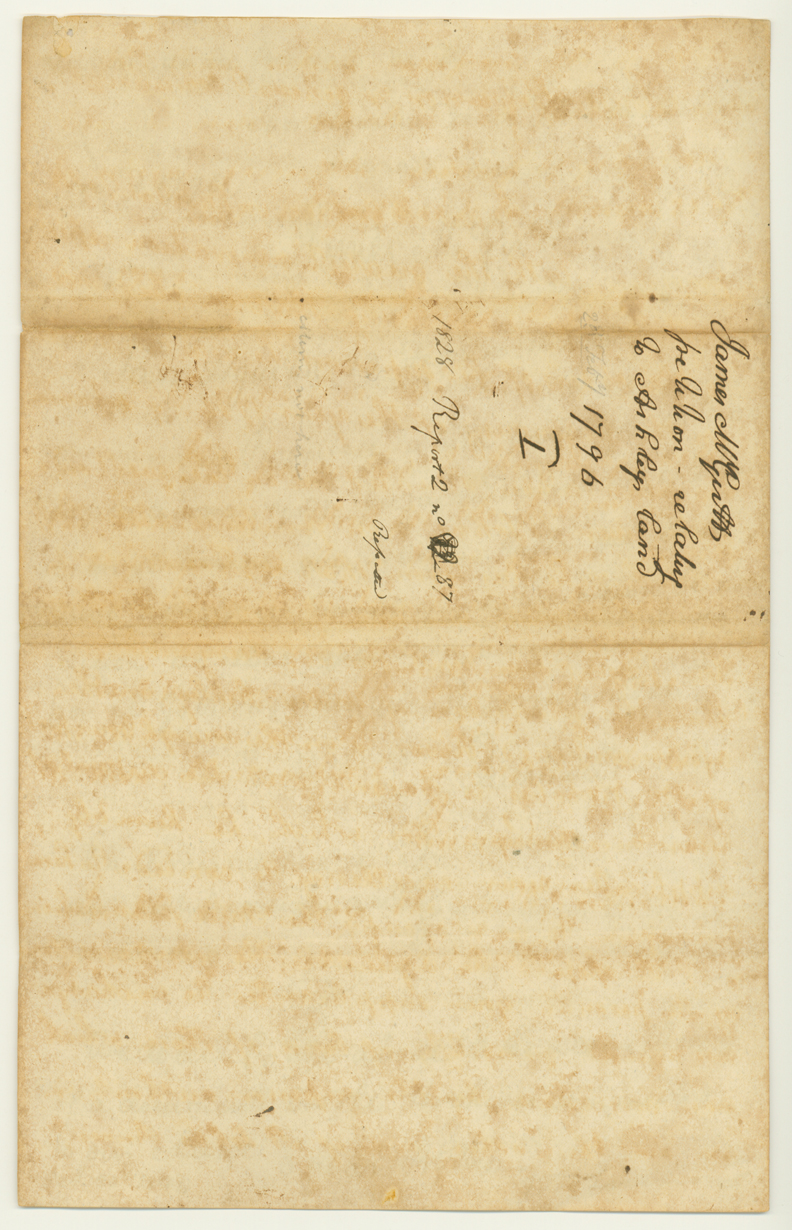 James McGirtt
petition - relating
to Ashleys land
1796
I
1828 Report 2 no 87
Reported